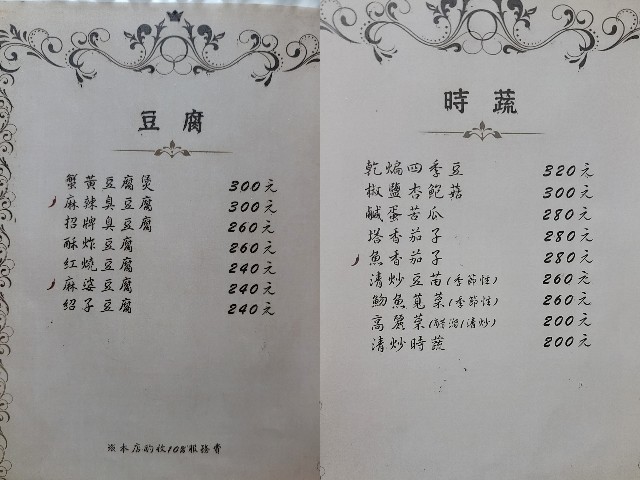 豆腐
蟹黃豆腐煲 300元
麻辣臭豆腐 300元
招牌臭豆腐 260元
酥炸豆腐 260元
紅燒豆腐 240元
麻婆豆腐 240元
紹子豆腐 240元
※本店酌收10%服務費
時蔬
乾煸四季豆 320元
椒鹽杏鮑菇 300元
鹹蛋苦瓜 280元
塔香茄子 280元
魚香茄子 280元
清炒豆苗(季節性) 260元
魩魚莧菜(季節性) 260元
高麗菜(醋溜/清炒) 200元
清炒時蔬 200元